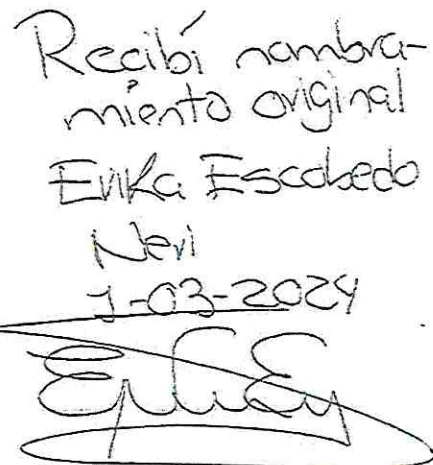 Recibí nombra-
miento original
Erika Escobedo
Neri
1-03-2024